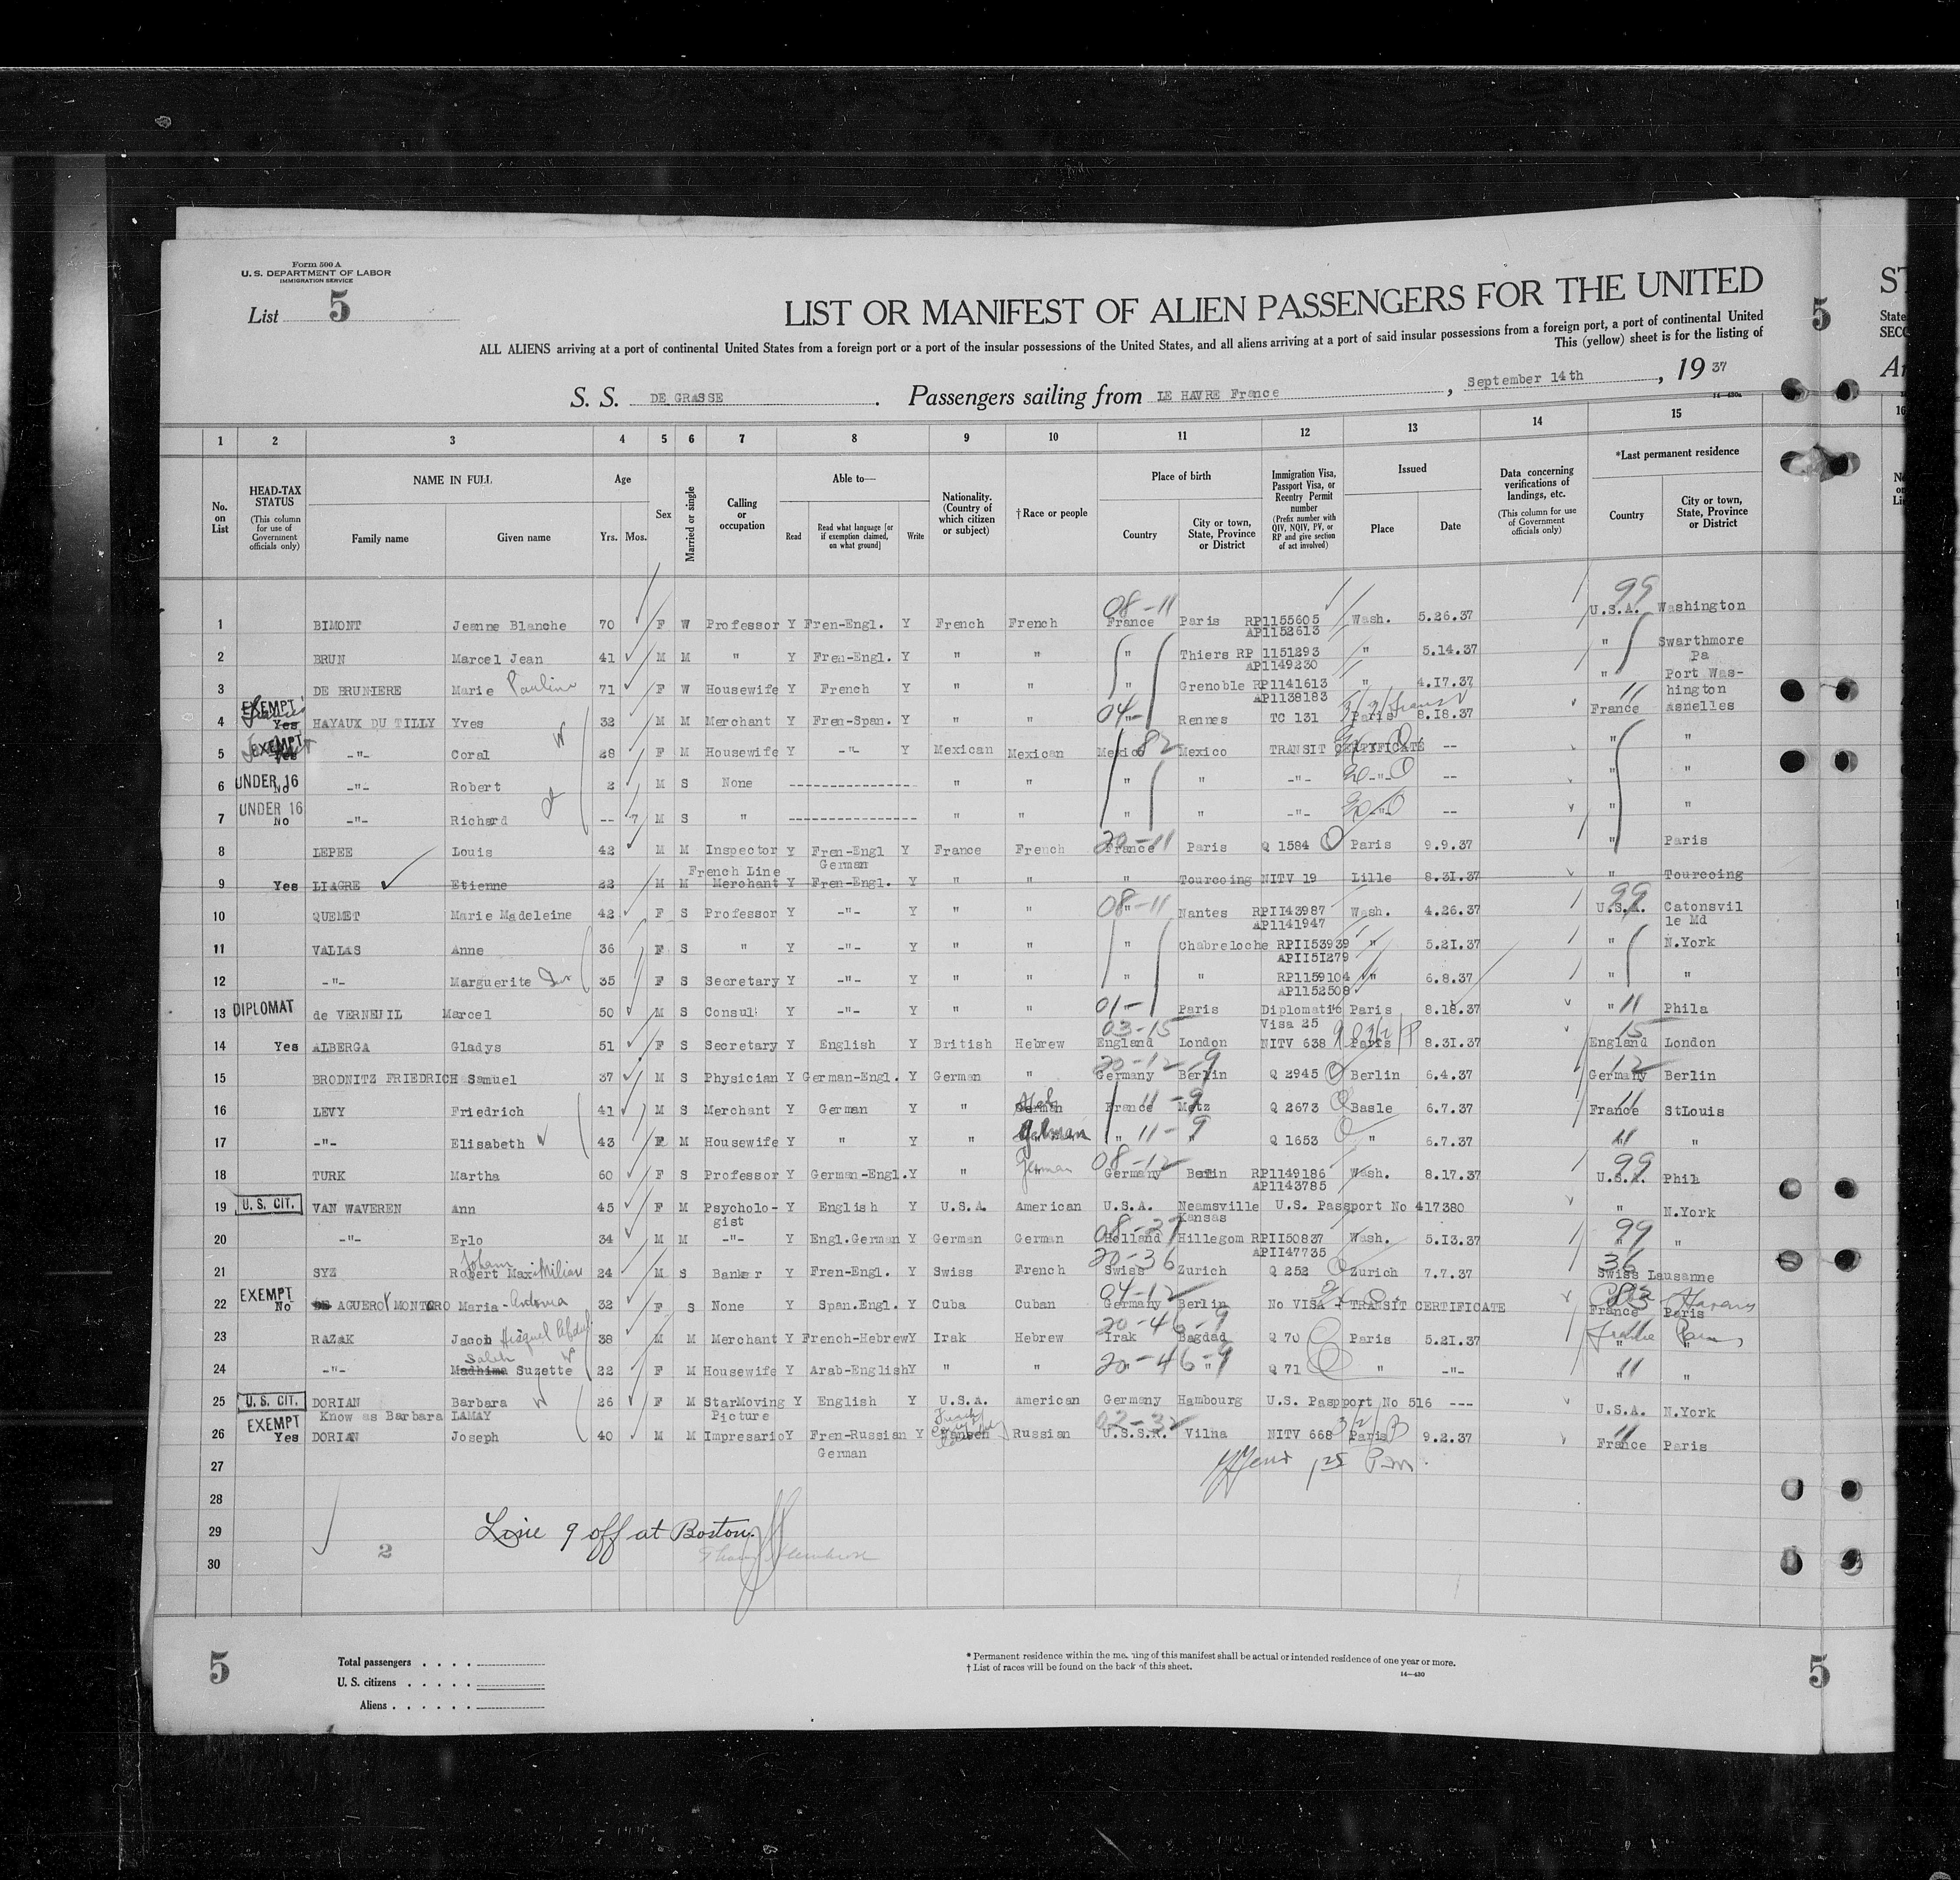 Form 500 A
U. S. DEPARTMENT OF LABOR
IMMIGRATION SERVICE
List 5
LIST OR MANIFEST OF ALIEN PASSENGERS FOR THE UNITED
5 ST
ALL ALIENS arriving at a port of continental United States from a foreign port or a port of the insular possessions of the United States, and all aliens arriving at a port of said insular possessions from a foreign port, a port of continental United
This (yellow) sheet is for the listing of
State
SECO
S. S. DE GRASSE. Passengers sailing from LE HAVRE France, September 14th, 19 37
14—430a
1 2 3 4 5 6 7 8 9 10 11 12 13 14 15 16
No. on List
HEAD-TAX STATUS (This column for use of Government officials only)
NAME IN FULL
Family name Given name
Age
Yrs. Mos.
Sex
Married or single
Calling or occupation
Able to—
Read
Read what language [or if exemption claimed, on what ground]
Write
Nationality. (Country of which citizen or subject)
† Race or people
Place of birth
Country
City or town, State, Province or District
Immigration Visa, Passport Visa, or Reentry Permit number (Prefix number with QIV, NQIV, PV, or RP and give section of act involved)
Issued
Place Date
Data concerning verifications of landings, etc. (This column for use of Government officials only)
*Last permanent residence
Country
City or town, State, Province or District
08-11 99
1 BIMONT Jeanne Blanche 70 F W Professor Y Fren-Engl. Y French French France Paris RP1155605 Wash. 5.26.37 U.S.A. Washington
AP1152613
2 BRUN Marcel Jean 41 M M " Y Fren-Engl. Y " " " Thiers RP 1151293 " 5.14.37 " Swarthmore
AP1149230 Pa
3 DE BRUNIERE Marie Pauline 71 F W Housewife Y French Y " " " Grenoble RP1141613 " 4.17.37 " Port Was-
AP1138183 hington
EXEMPT 04- 11
4 Yes HAYAUX DU TILLY Yves 32 M M Merchant Y Fren-Span. Y " " " Rennes TC 131 Paris 8.18.37 France Asnelles
EXEMPT
5 Yes -"- Coral 28 F M Housewife Y -"- Y Mexican Mexican Mexico 82 Mexico TRANSIT CERTIFICATE -- " "
UNDER 16
6 No -"- Robert 2 M S None ---------------- " " " " -"- -"- -- " "
UNDER 16
7 No -"- Richard -- 7 M S " ---------------- " " " " -"- -"- -- " "
20-11
8 LEPEE Louis 42 M M Inspector Y Fren-Engl Y France French France Paris Q 1584 Paris 9.9.37 " Paris
French Line German
9 Yes LIAGRE Etienne 22 M M Merchant Y Fren-Engl. Y " " " Tourcoing NITV 19 Lille 8.31.37 " Tourcoing
08-11 99
10 QUEMET Marie Madeleine 42 F S Professor Y -"- Y " " " Nantes RPII43987 Wash. 4.26.37 U.S.A. Catonsvil
AP1141947 le Md
11 VALLAS Anne 36 F S " Y -"- Y " " " Chabreloche RPII53939 " 5.21.37 " N.York
APII5I279
12 -"- Marguerite 35 F S Secretary Y -"- Y " " " " RP1159104 " 6.8.37 " "
AP1152508
DIPLOMAT 01- 11
13 de VERNEUIL Marcel 50 M S Consul Y -"- Y " " Paris Diplomatic Paris 8.18.37 " Phila
Visa 25
03-15 15
14 Yes ALBERGA Gladys 51 F S Secretary Y English Y British Hebrew England London NITV 638 Paris 8.31.37 England London
20-12-9 12
15 BRODNITZ FRIEDRICH Samuel 37 M S Physician Y German-Engl. Y German " Germany Berlin Q 2945 Berlin 6.4.37 Germany Berlin
16 LEVY Friedrich 41 M S Merchant Y German Y " German France 11-9 Metz Q 2673 Basle 6.7.37 France 11 StLouis
17 -"- Elisabeth 43 F M Housewife Y " Y " German " 11-9 " Q 1653 " 6.7.37 11 "
German 08-12 99
18 TURK Martha 60 F S Professor Y German-Engl. Y " Germany Berlin RP1149186 Wash. 8.17.37 U.S.A. Phil
AP1143785
U. S. CIT.
19 VAN WAVEREN Ann 45 F M Psycholo- Y English Y U.S.A. American U.S.A. Neamsville U.S. Passport No 417380 " N.York
gist Kansas
08-27 99
20 -"- Erlo 34 M M -"- Y Engl.German Y German German Holland Hillegom RPII50837 Wash. 5.I3.37 "
APII47735
Johann 20-36 36
21 SYZ Robert Maximilian 24 M S Banker Y Fren-Engl. Y Swiss French Swiss Zurich Q 252 Zurich 7.7.37 Swiss Lausanne
EXEMPT 04-12 83
22 No DE AGUERO Y MONTORO Maria- 32 F S None Y Span.Engl. Y Cuba Cuban Germany Berlin No VISA - TRANSIT CERTIFICATE France Paris
20-46-9
23 RAZAK Jacob 38 M M Merchant Y French-Hebrew Y Irak Hebrew Irak Bagdad Q 70 Paris 5.21.37 "
Saleh 20-46-9 11
24 -"- Madhima Suzette 22 F M Housewife Y Arab-English Y " " " " Q 71 " -"- "
U. S. CIT.
25 DORIAN Barbara 26 F M StarMoving Y English Y U.S.A. American Germany Hambourg U.S. Passport No 516 --- U.S.A. N.York
Know as Barbara LAMAY Picture
EXEMPT 02-32 11
26 Yes DORIAN Joseph 40 M M Impresario Y Fren-Russian Y Nansen Russian U.S.S.R. Vilna NITV 668 Paris 9.2.37 France Paris
German
27
28
29 Line 9 off at Boston.
2
30
5
Total passengers
U. S. citizens
Aliens
* Permanent residence within the meaning of this manifest shall be actual or intended residence of one year or more.
† List of races will be found on the back of this sheet.
14—430
5